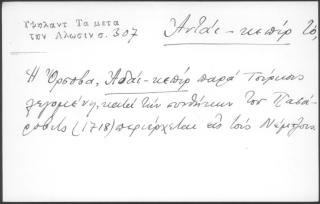 Ὑψηλαντ Τα μετα
την Αλωσιν σ. 307
Ἀντάε-κεπίρ τό,
Ἡ Ὄρσοβα, Ἀδάε-κεπίρ παρά Τούρκοις
λεγομένη, κατά τήν συνθήκην τοῦ Πασά-
ροβιτς (1718) περιέρχεται εἰς τούς Νέμτζους